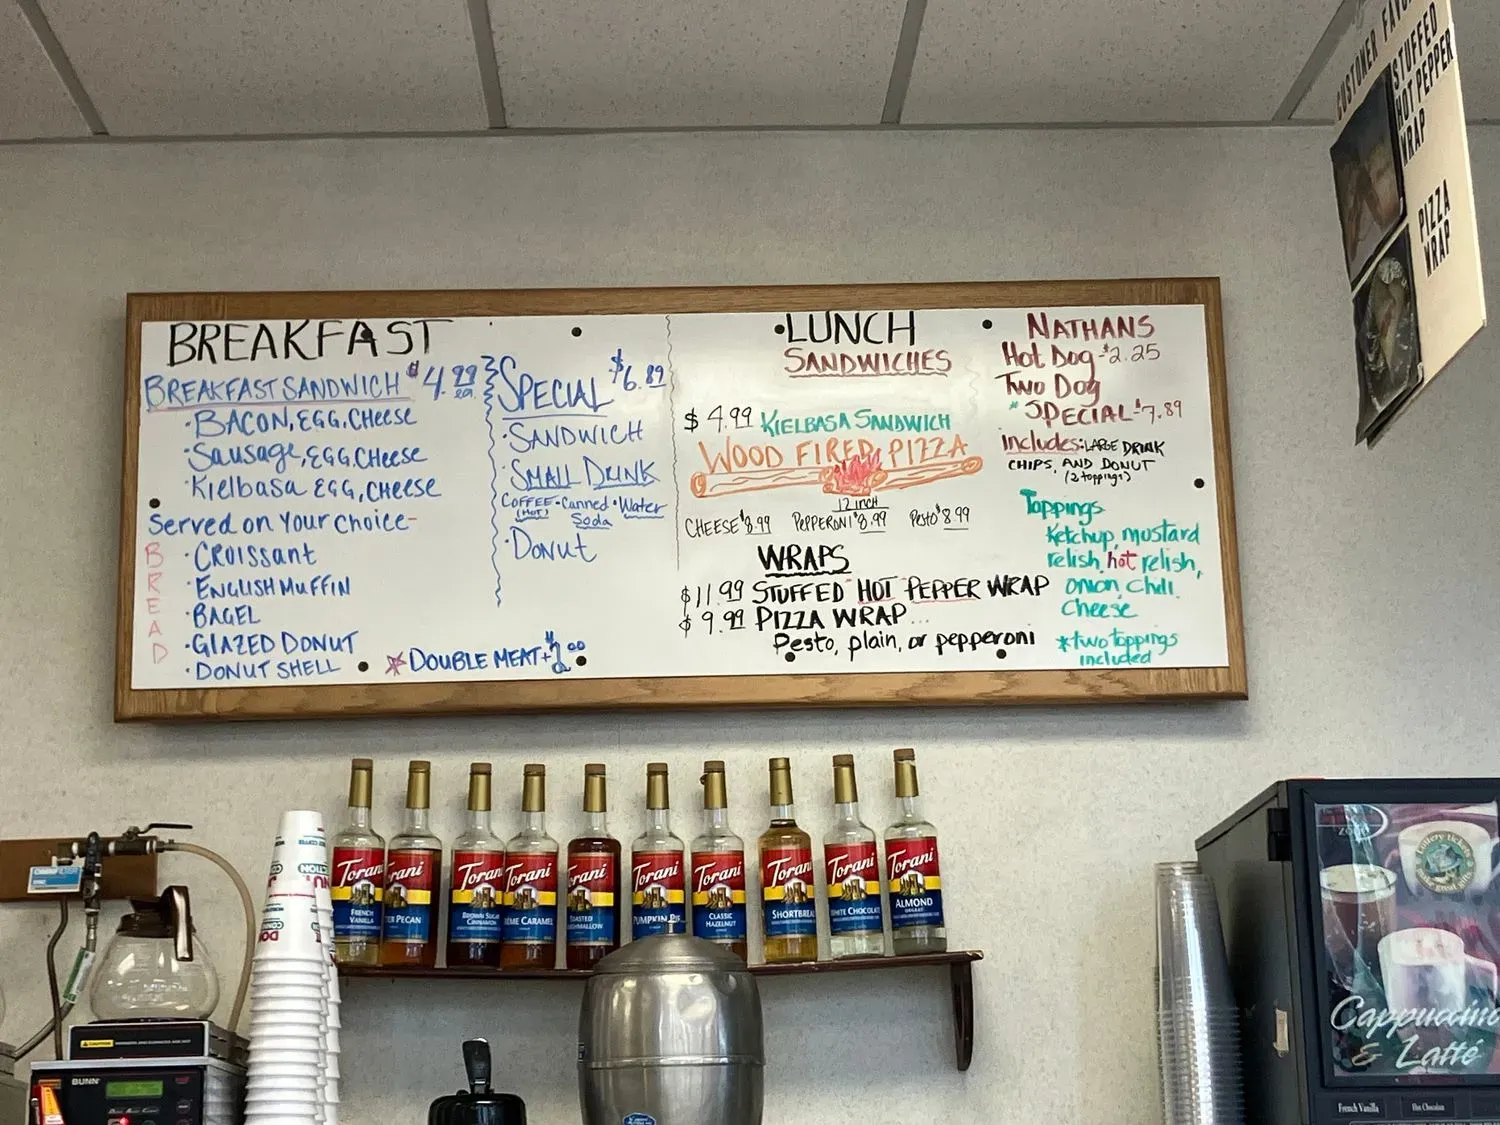 BREAKFAST
BREAKFAST SANDWICH $4.99 ea.
· BACON, EGG, CHEESE
· Sausage, EGG, CHeese
· Kielbasa EGG, CHEESE
Served on Your Choice-
BREAD
· CROISSANT
· ENGLISH MUFFIN
· BAGEL
· GLAZED DONUT
· DONUT SHELL
SPECIAL $6.89
· SANDWICH
· SMALL DRINK
COFFEE · Canned · Water
(HOT) Soda
· DONUT
* DOUBLE MEAT + $2.00
LUNCH
SANDWICHES
$4.99 KIELBASA SANDWICH
WOOD FIRED PIZZA
12 inch
CHEESE $8.99 PEPPERONI $8.99 PESTO $8.99
WRAPS
$11.99 STUFFED HOT PEPPER WRAP
$9.99 PIZZA WRAP...
Pesto, plain, or pepperoni
NATHANS
Hot Dog - $2.25
Two Dog
* SPECIAL - $7.89
includes: LARGE DRINK
CHIPS, AND DONUT
(2 toppings)
Toppings
Ketchup, mustard
relish, hot relish,
onion, chili
cheese
* two toppings
included
CUSTOMER
STUFFED
HOT PEPPER
WRAP
PIZZA
WRAP
Torani FRENCH VANILLA
Torani PECAN
Torani BROWN SUGAR CINNAMON
Torani CARAMEL
Torani
Torani PUMPKIN PIE
Torani CLASSIC HAZELNUT
Torani SHORTBREAD
Torani WHITE CHOCOLATE
Torani ALMOND
CAUTION
BUNN
Cappuccino
& Latté
French Vanilla